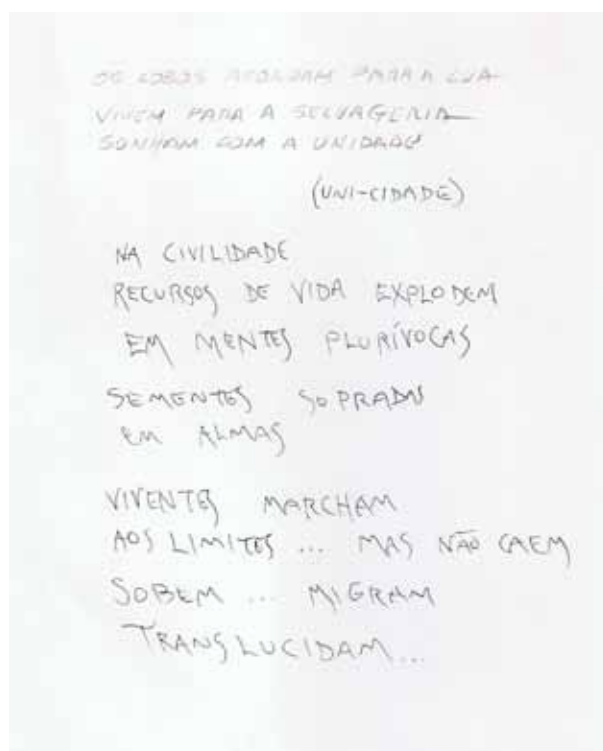 OS LOBOS ACORDAM PARA A LUA
VIVEM PARA A SELVAGERIA
SONHAM COM A UNIDADE
(UNI-CIDADE)
NA CIVILIDADE
RECURSOS DE VIDA EXPLODEM
EM MENTES PLURÍVOCAS
SEMENTES SOPRADAS
EM ALMAS
VIVENTES MARCHAM
AOS LIMITES ... MAS NÃO CAEM
SOBEM ... MIGRAM
TRANSLUCIDAM...